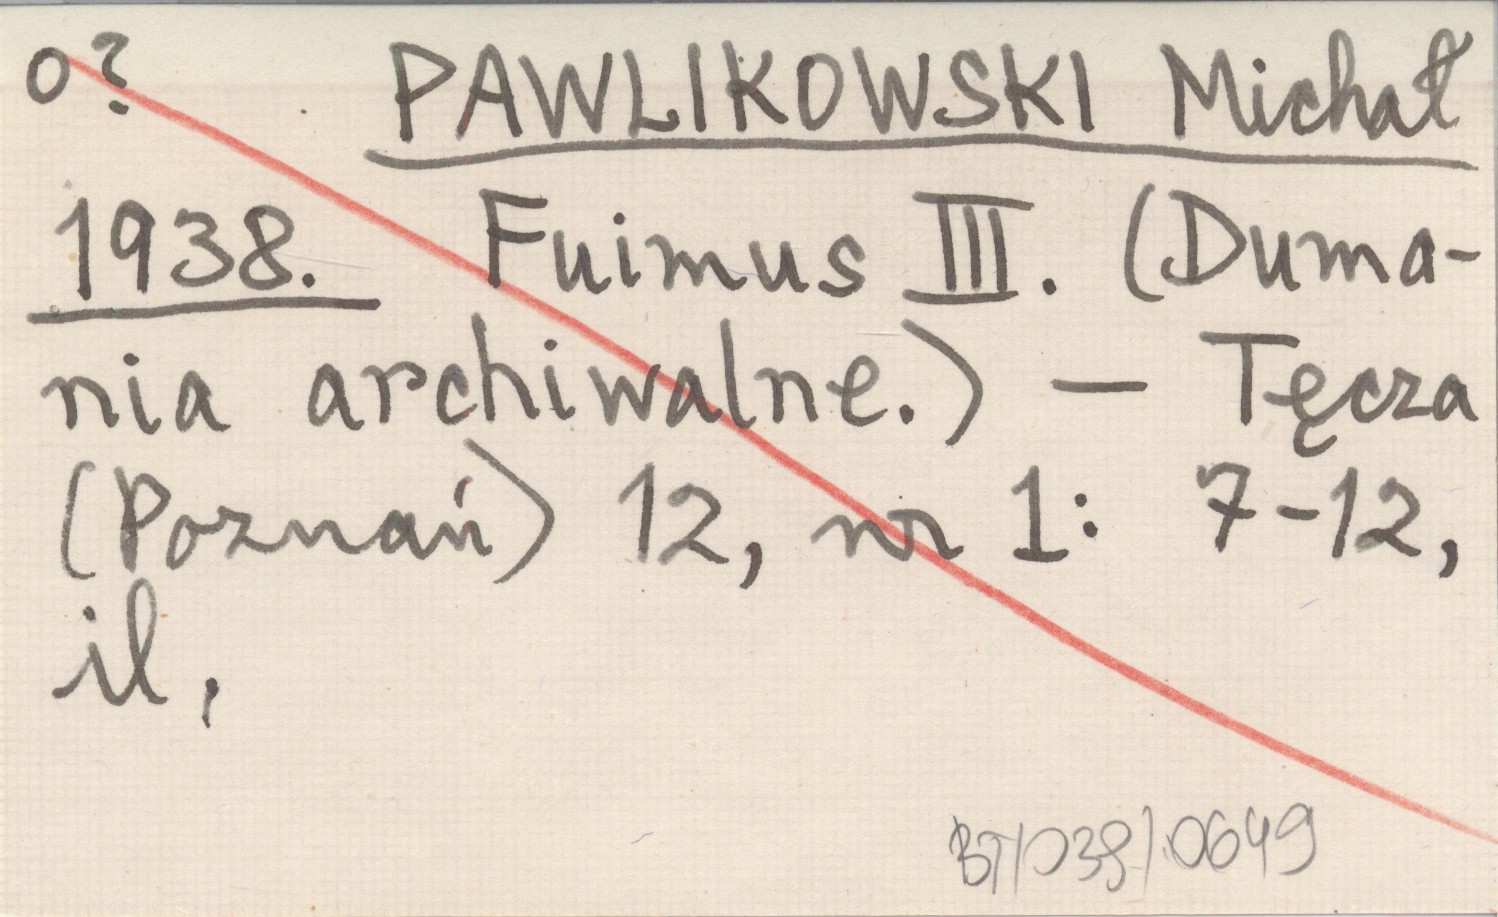 o? PAWLIKOWSKI Michał
1938. Fuimus III. (Duma-
nia archiwalne.) — Tęcza
(Poznań) 12, nr 1: 7-12,
il,
BT/038/0649